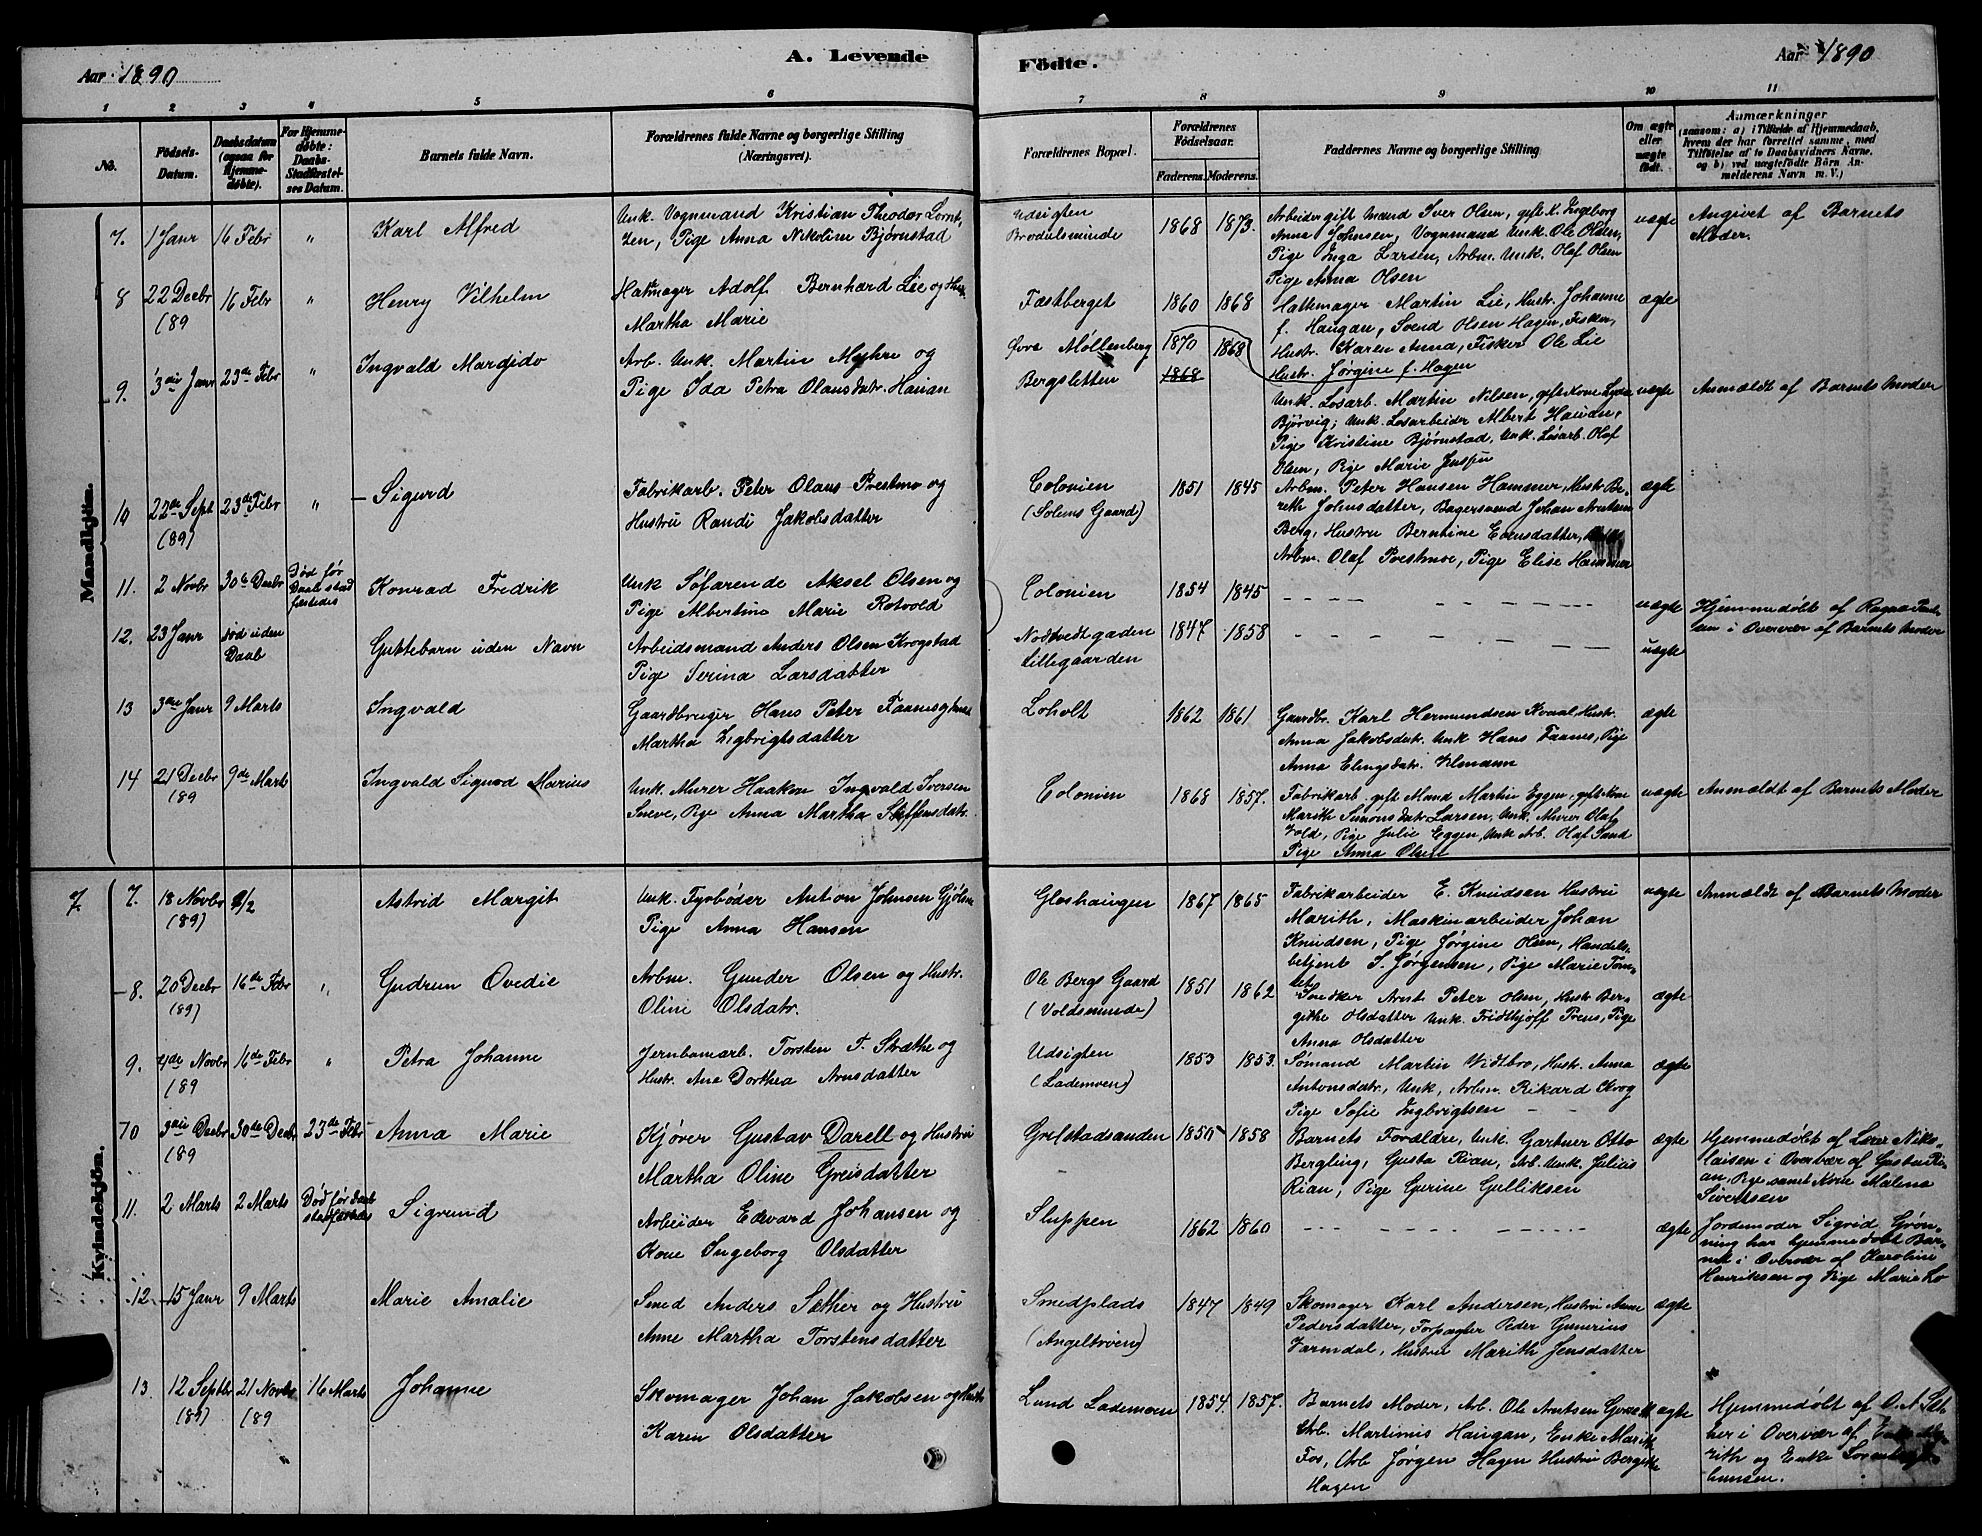 Aar 1890
A. Levende
Födte.
Aar 1890
1 2 3 4 5 6 7 8 9 10 11
No.
Födsels-Datum.
Daabsdatum (ogsaa for Hjemmedöbte).
For Hjemmedöbte: Daabs-Stadfæstelses Datum.
Barnets fulde Navn.
Forældrenes fulde Navne og borgerlige Stilling (Næringsvei).
Forældrenes Bopæl.
Forældrenes Födselsaar.
Faderens. Moderens.
Faddernes Navne og borgerlige Stilling
Om ægte eller uægte födt.
Anmærkninger
(saasom: a) i Tilfælde af Hjemmedaab, hvem der har forrettet samme, med Tilföielse af to Daabsvidners Navne, og b) ved uægtefödte Börn Anmelderens Navn m. V.)
Mandkjön.
7. 1 Janr 16 Febr " Karl Alfred
Unk. Vognmand Kristian Theodor Lorntzen, Pige Anna Nikoline Bjørnstad
Udsigten Brodulsminde 1868 1873.
Arbeider gift Mand Iver Olsen, gift K. Ingeborg
Anna Johnsen, Vognmand Unk. Ole Olsen,
Pige Inga Larsen, Arbm. Unk. Olaf Olsen
Pige Anna Olsen
uægte Angivet af Barnets Moder.
8 22 Decbr (89 16 Febr " Henry Vilhelm
Hatmager Adolf Bernhard Lie og Hus.
Martha Marie
Fæstberget 1860 1868
Hattemager Martin Lie, Hustr. Johanne
f. Haugan, Svend Olsen Hagen, Fisker,
Hustr. Karen Anna, Fisker Ole Lie
Hustr. Jørgine f. Hagen
ægte
9. 3die Janr 23de Febr " Ingvald Margido
Arb. Unk. Martin Myhre og
Pige Ida Petra Olausdatr. Hauan
Øvre Møllenberg 1870 1868
Bergsletten 1868
Unk. Løsarb. Martin Nilsen, gift Kone Lyda
Bjørvig, Unk. Løsarbeider Albert Hauan,
Pige Kristine Bjørnstad, Unk. Løsarb. Olaf
Olsen, Pige Marie Jensen
uægte Anmeldt af Barnets Moder
10 22de Sept (89) 23de Febr " Sigurd
Fabrikarb. Peter Olaus Prestmo og
Hustru Randi Jakobsdatter
Colonien (Solems Gaard) 1851 1845
Arbm. Peter Hansen Hammer, Hustr. Be-
reth Johnsdatter, Bagersvend Johan Arntsen
Berg, Hustru Berntine Evensdatter,
Arbm. Olaf Prestmoe, Pige Elise Hammer
ægte
11. 2 Novbr 30te Decbr Död før Daabs stadfæstedes Konrad Fredrik
Unk Søfarende Aksel Olsen og
Pige Albertine Marie Rotvold
Colonien 1854 1845
uægte Hjemmedøbt af Ragna
i Overvær af Barnets Moder
12. 23 Janr død uden Daab Guttebarn uden Navn
Arbeidsmand Anders Olsen Krogstad
Pige Serina Larsdatter
Nodtvedtgaden Lillegaarden 1847 1858
uægte
13 3die Janr 9 Marts Ingvald
Gaardbruger Hans Peter Faanes
Martha Ingbrigtsdatter
Loholt 1862 1861
Gaardbr. Karl Hermundsen Kvaal, Hustr.
Anna Jakobsdatr. Unk Hans Faanes, Pige
Anna Elingsdatr. Ulsmann
ægte
14 21 Decbr (89 9de Marts Ingvald Sigurd Marius
Unk. Murer Haakon Ingvald Iversen
Sneve, Pige Anna Martha Steffensdatr.
Colonien 1868 1857.
Fabrikarb. gift Mand Martin Eggen, gift Kone
Marith Simonsdatr. Larsen, Unk. Murer Olaf
Vold, Pige Julie Eggen, Unk Arb. Olaf Sand
Pige Anna Olsen
uægte Anmældt af Barnets Moder
Kvindekjön.
7. 7. 18 Novbr (89) 9/2 Astrid Margit
Unk. Fyrbøder Anton Johnsen Gjölme
Pige Anna Hansen
Gløshaugen 1867 1865
Fabrikarbeider E. Knudsen Hustru
Marith, Maskinarbeider Johan
Knudsen, Pige Jørgine Olsen, Handels-
betjent S. Jørgensen, Pige Marie
uægte Anmældt af Barnets Moder
8. 20 Decbr (89) 16de Febr " Gudrun Ovedie
Arbm. Gunder Olsen og Hustr.
Oline Olsdatr.
Ole Bergs Gaard (Voldsminde) 1851 1862
Snedker Arnt Peter Olsen, Hustr Ber-
githe Olsdatter Unk. Fridthjoff Prens, Pige
Anna Olsdatter
ægte
9. 4de Novbr (89 16de Febr " Petra Johanne
Jernbanearb. Torsten T. Stræthe og
Hustr. Ane Dorthea Arnsdatter
Udsigten (Lademoen) 1853 1853.
Sømand Martin Vidtbro, Hustr. Anna
Antonsdatr., Unk, Arbm. Rikard Krog
Pige Sofie Ingbrigtsen
ægte
10 3die Decbr (89 30de Decbr 23de Febr Anna Marie
Kjører Gustav Darell og Hustru
Martha Oline Greisdatter
Grilstadsanden 1850 1858
Barnets Forældre, Unk. Gartner Otto
Bergling, Gusta Rian, Arb. Unk. Julius
Rian, Pige Gurine Gulliksen
ægte Hjemmedøbt af Lærer Niko-
laisen i Overvær af Gusta Ri-
an, Pige samt Kone Malena
Sivertsen
11. 2 Marts 2 Marts Död før Daab stadfæstedes Sigrund
Arbeider Edvard Johansen og
Kone Ingeborg Olsdatter
Sluppen 1862 1860
ægte Jordemoder Sigrid Grøn-
ning har hjemmedøbt Bar-
net i Overvær af Karoline
Henriksen og Pige Marie Lo
12 15 Janr 9 Marts Marie Amalie
Smed Anders Sæther og Hustru
Anne Martha Torstensdatter
Smedplads (Angeltrøen) 1847 1849
Skomager Karl Andersen, Hustru Anne
Pedersdatter, Forpagter Peder Gunerius
Varmdal, Hustru Marith Jensdatter
ægte
13. 12 Septbr (89) 21 Novbr (89 16 Marts Johanne
Skomager Johan Jakobsen og Hustr
Karen Olsdatter
Lund Lademoen 1854 1857.
Barnets Moder, Arb. Ole Arntsen
Arb. Martinus Haugan, Enke Marith
Fos, Arb Jørgen Hagen Hustru Bergithe
Hagen
ægte Hjemmedøbt af O. A. Sæt-
her i Overvær af
og Enke